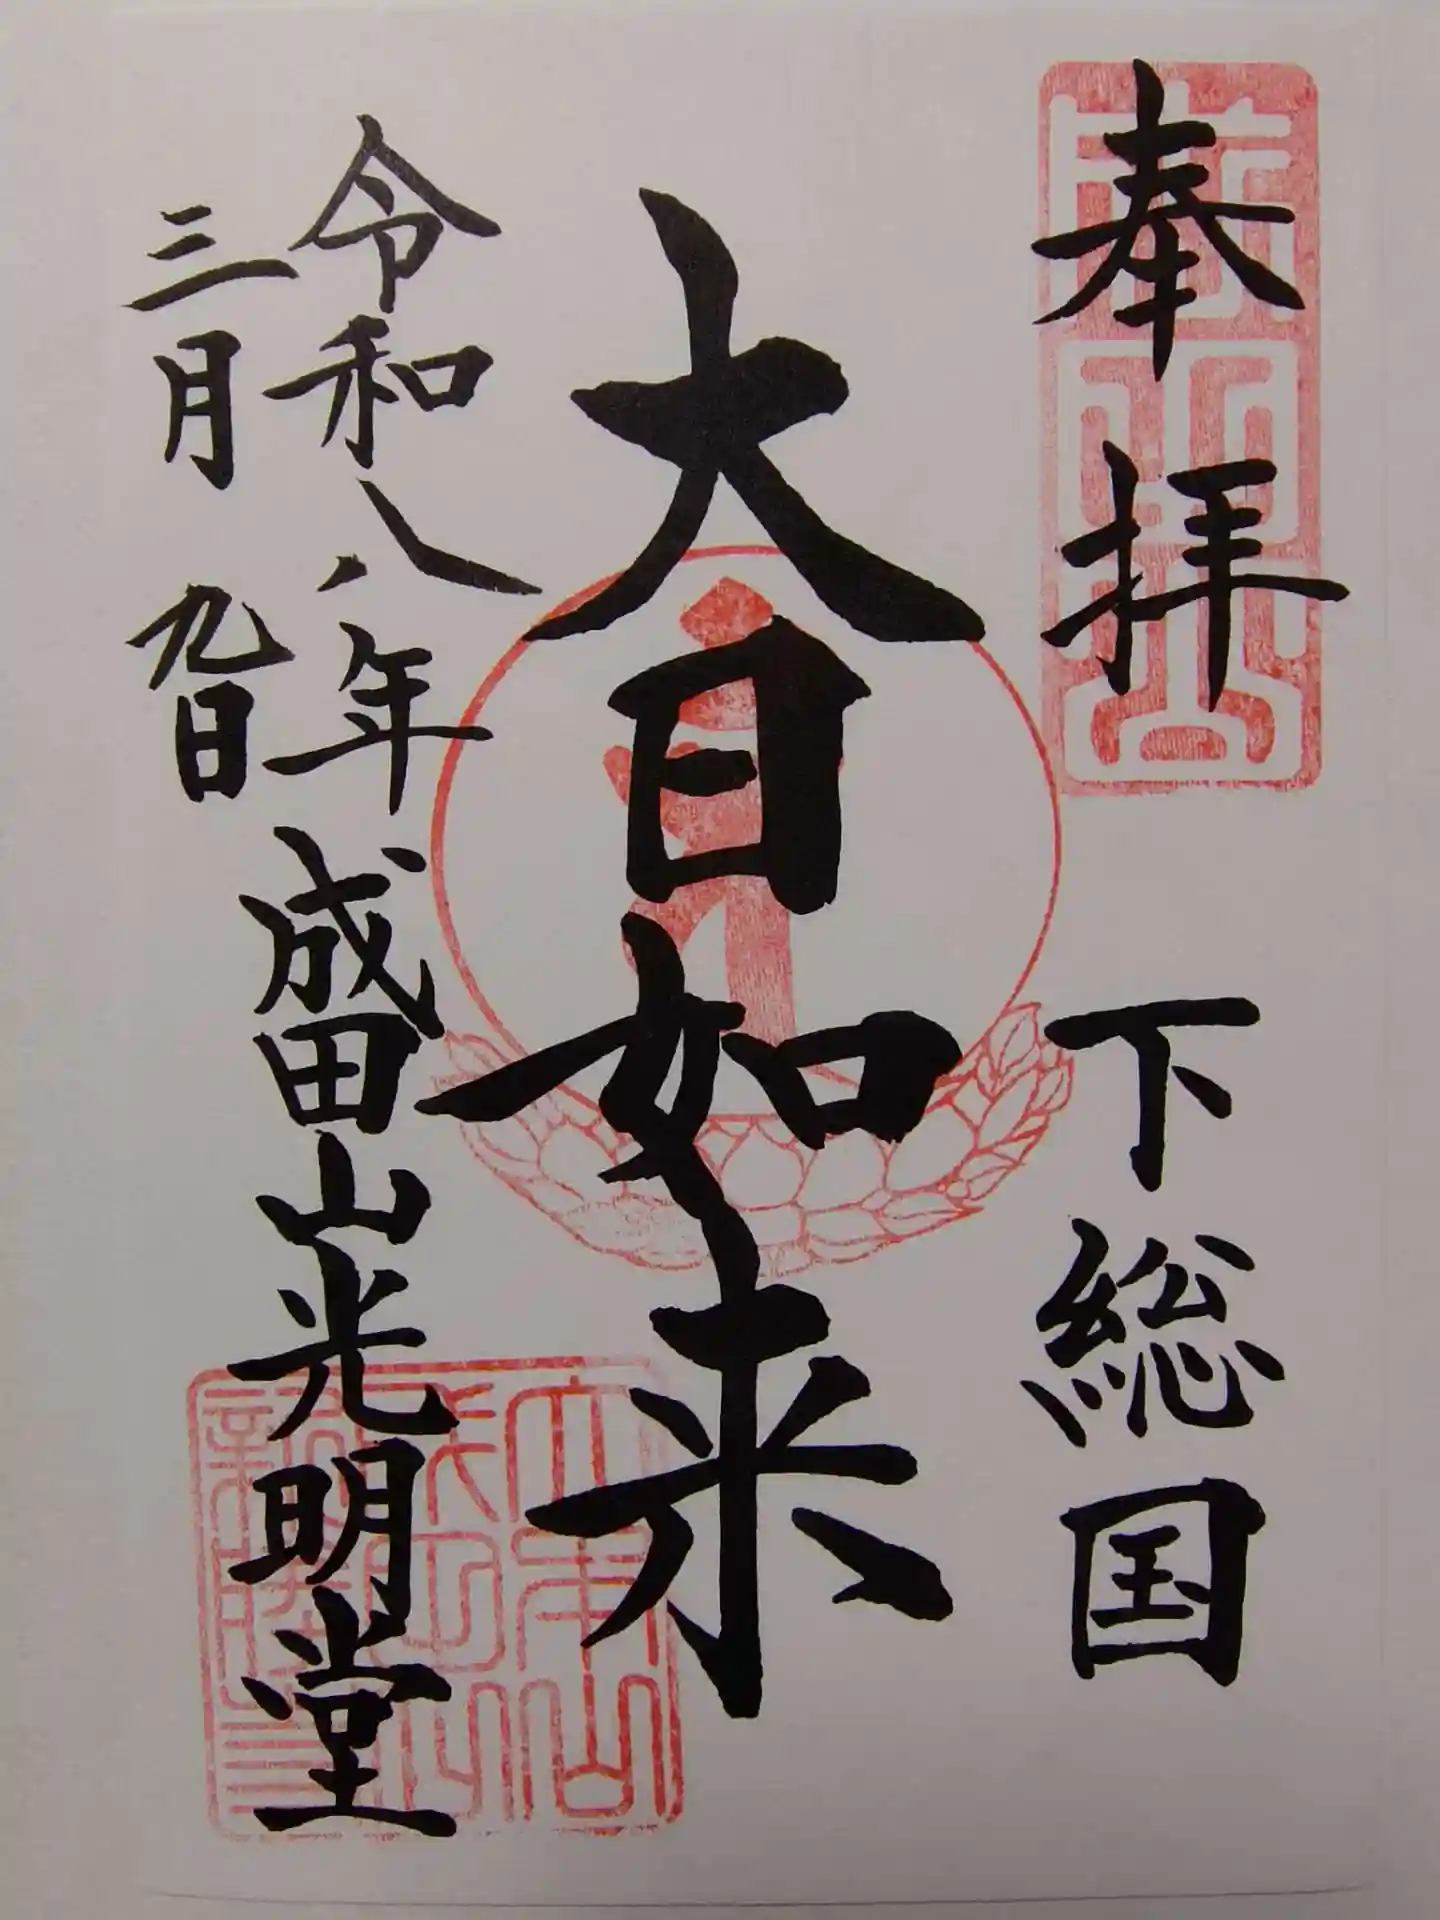 奉拝
下総国
大日如来
成田山光明堂
令和八年
三月九日